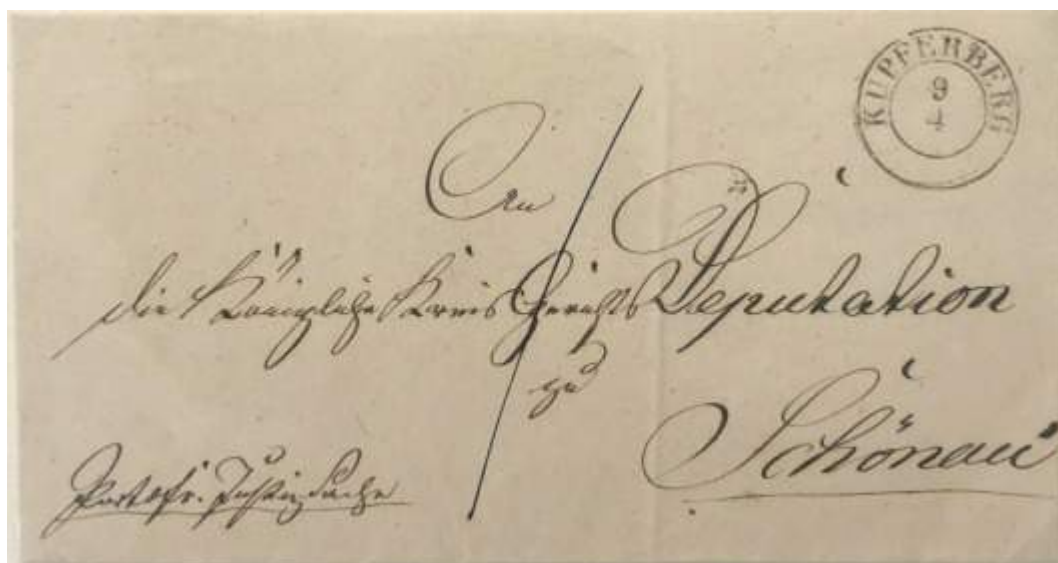 KUPFERBERG
9
4
An
die Königliche Kreis Gerichts Deputation
zu
Schönau
Portofr. Justiz Sache